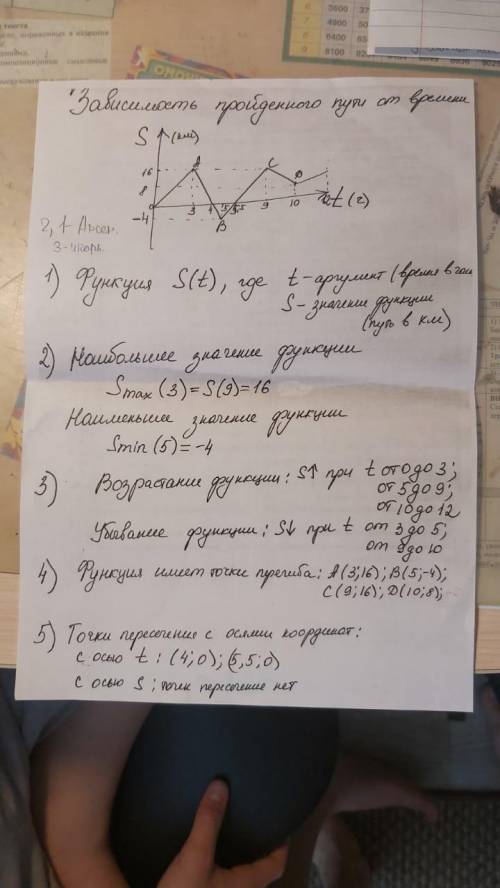 Зависимость пройденного пути от времени
S (км)
16
8
0
-4
A
B
C
D
3
4
5
5,5
9
10
12
t (г)
2, 1-
3-
1) Функция S(t), где t-аргумент (время в час
S- значение функции
(путь в км)
2) Наибольшее значение функции
Smax (3) = S(9) = 16
Наименьшее значение функции
Smin (5) = -4
3) Возрастание функции: S↑ при t от 0 до 3;
от 5 до 9;
от 10 до 12
Убывание функции: S↓ при t от 3 до 5;
от 9 до 10
4) Функция имеет точки прегиба: A(3;16); B(5;-4);
C(9;16); D(10;8);
5) Точки пересечение с осями координат:
с осью t: (4;0); (5,5;0)
с осью S: точек пересечение нет